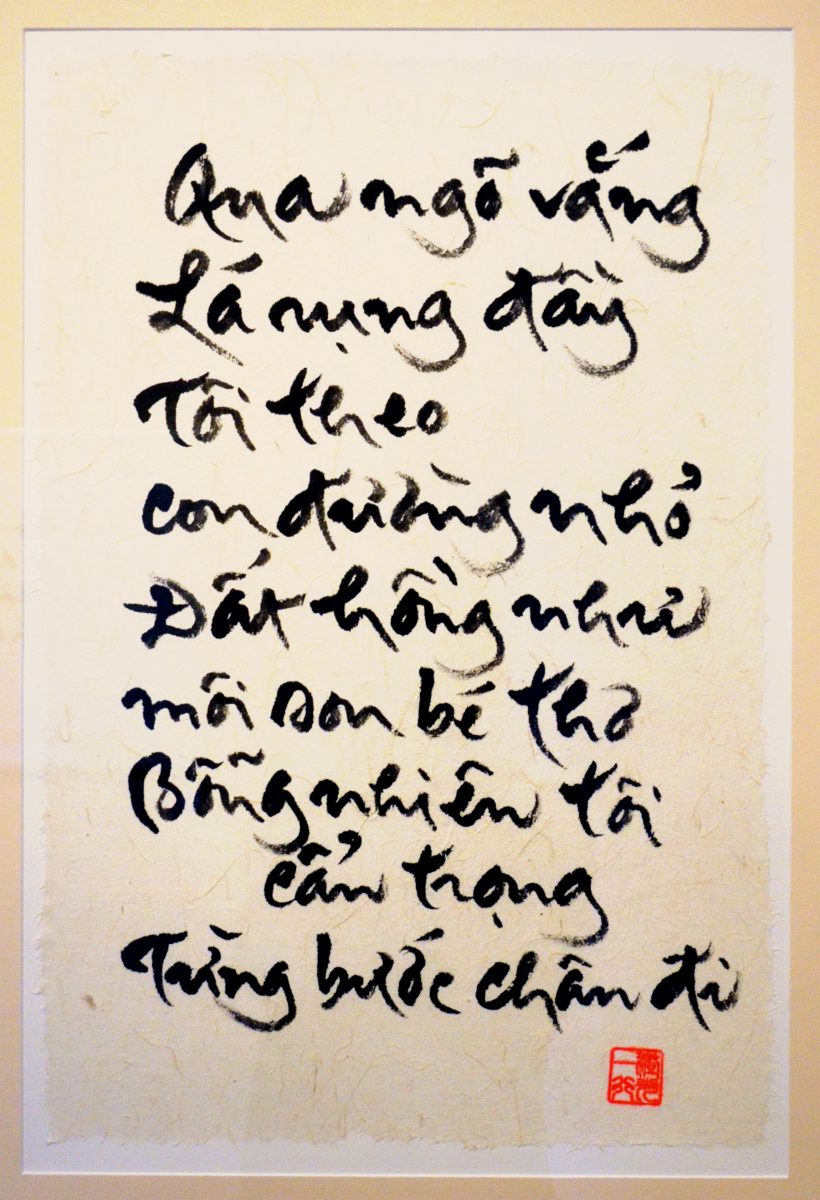 Qua ngõ vắng
Lá rụng đầy
Tôi theo
con đường nhỏ
Đất hồng như
môi son bé thơ
Bỗng nhiên tôi
cẩn trọng
Từng bước chân đi